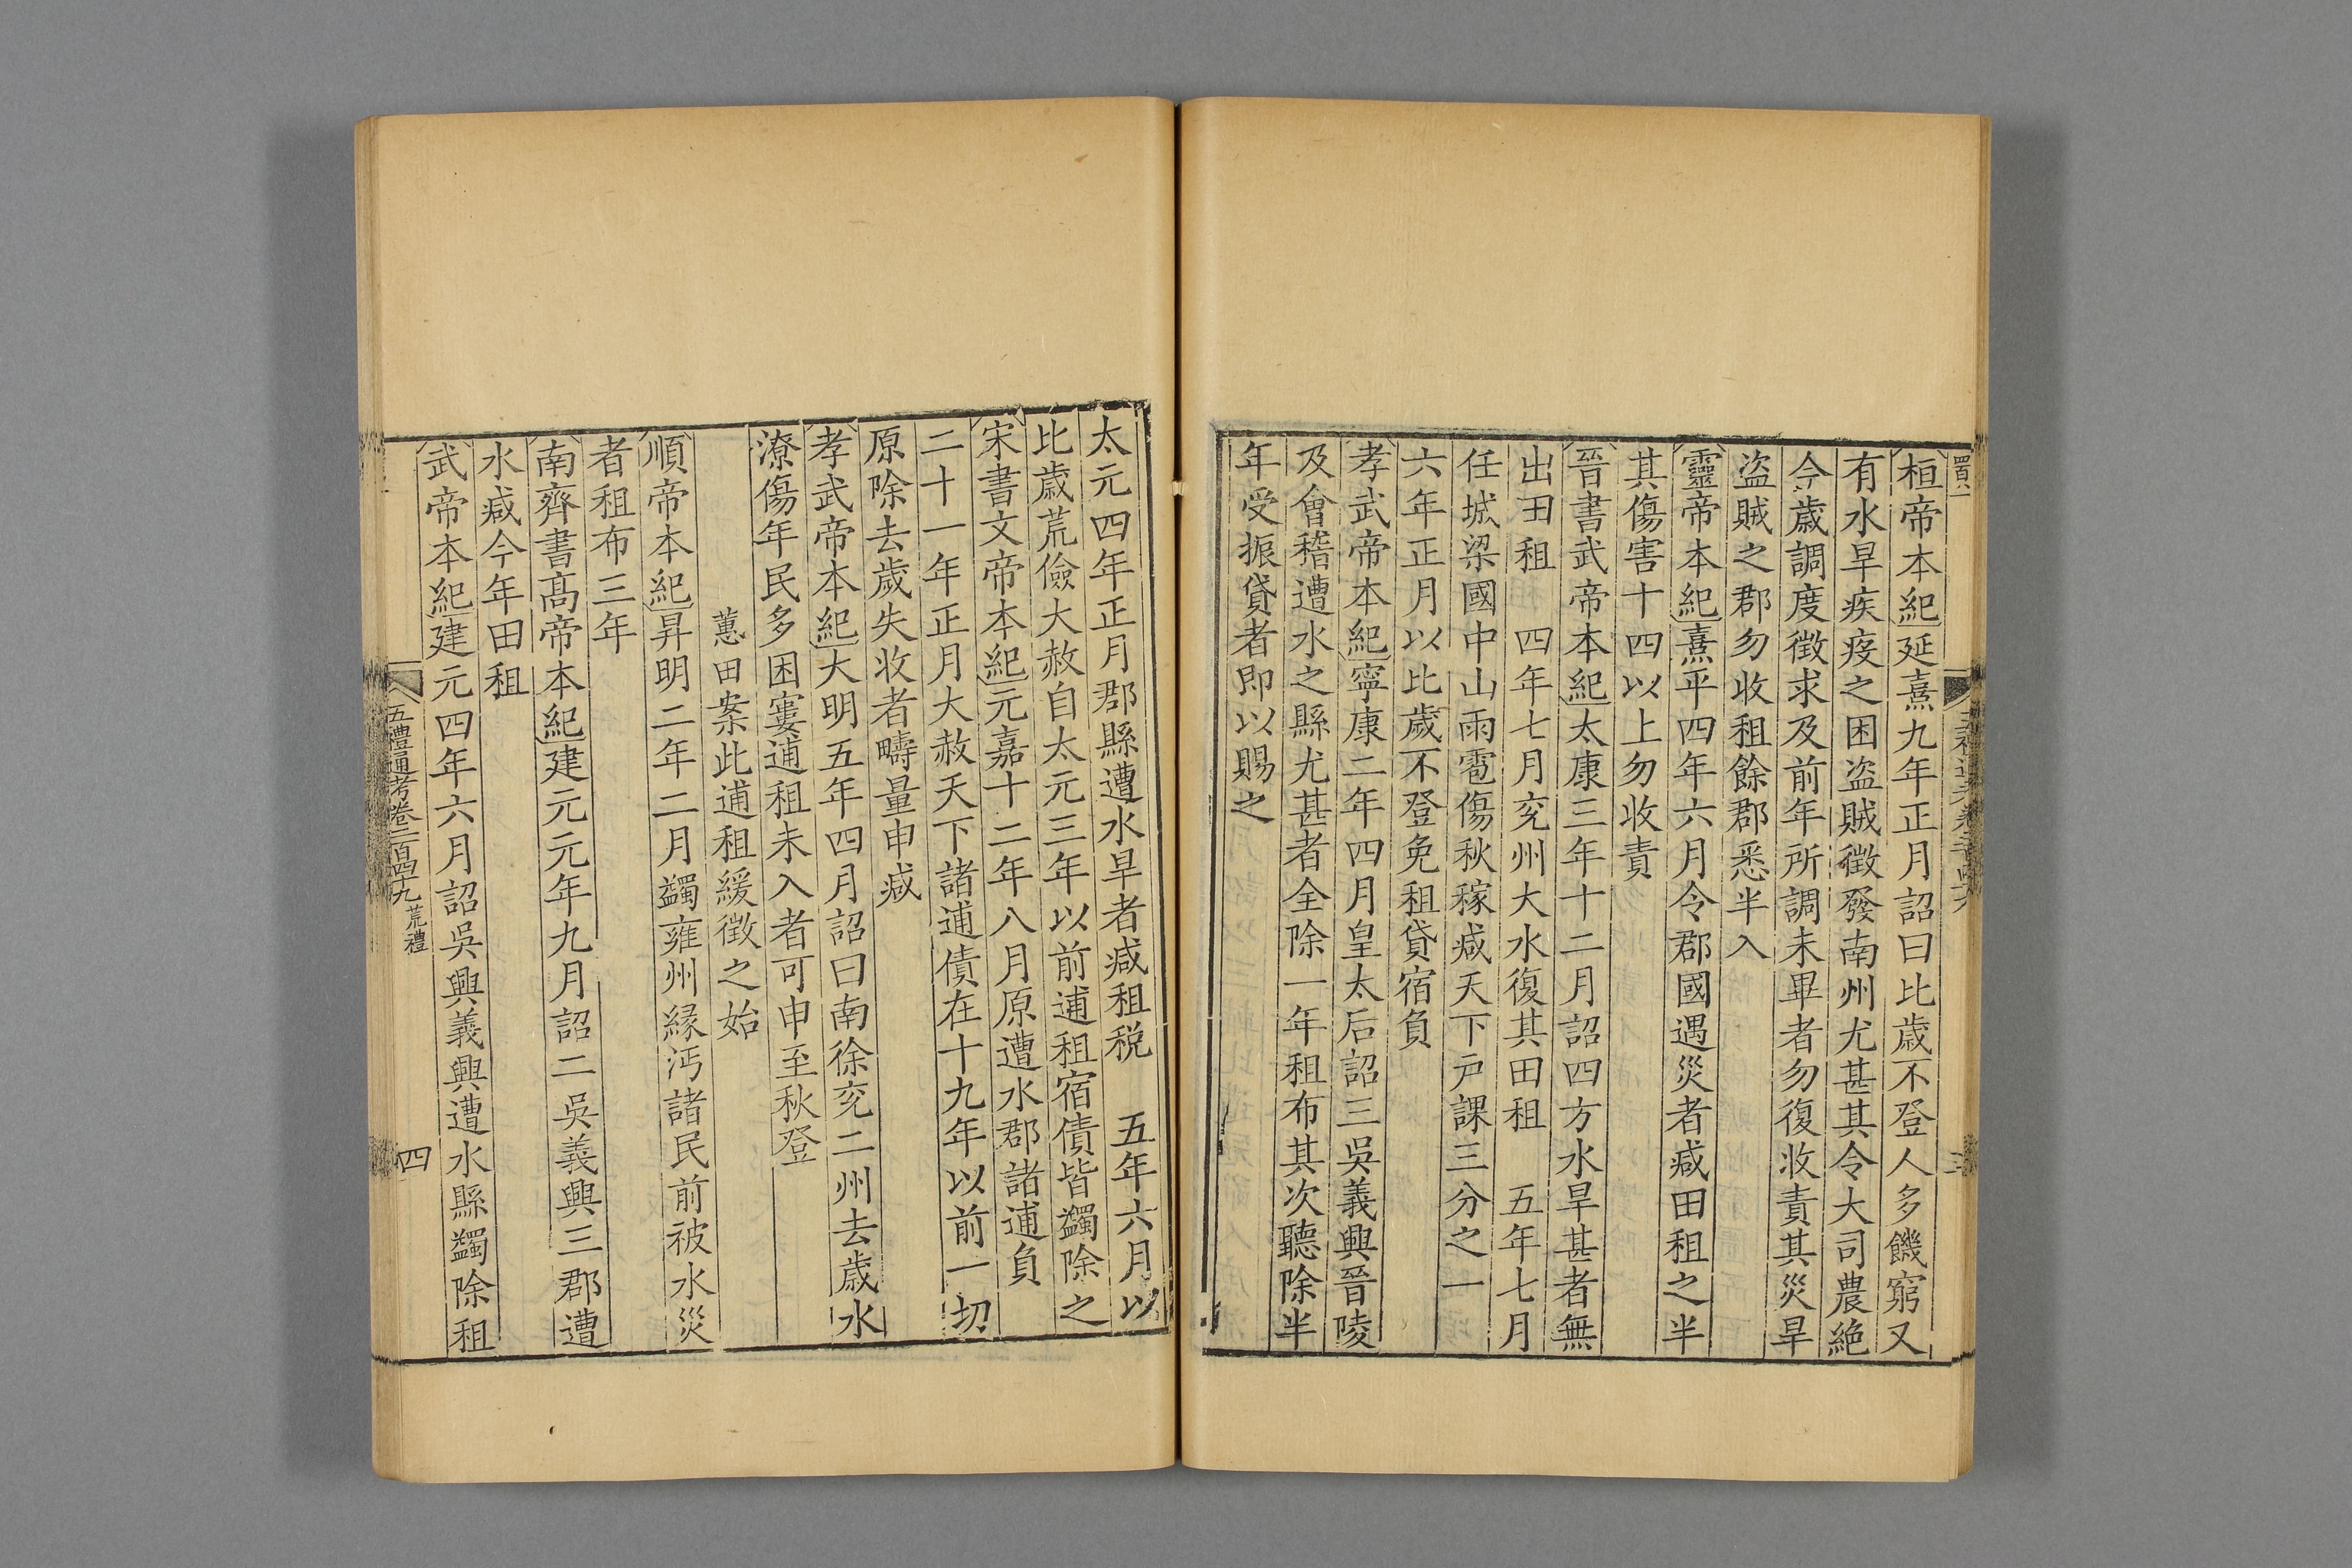 桓帝本紀延熹九年正月詔曰比歳不登人多饑窮又
有水旱疾疫之困盗賊徵發南州尤甚其令大司農絶
今歲調度徵求及前年所調未畢者勿復收責其災旱
盗賊之郡勿收租餘郡悉半入
靈帝本紀熹平四年六月令郡國遇災者减田租之半
其傷害十四以上勿收責
晉書武帝本紀太康三年十二月詔四方水旱甚者無
出田租　四年七月兖州大水復其田租　五年七月
任城梁國中山雨雹傷秋稼减天下戸課三分之一
六年正月以比歲不登免租貸宿負
孝武帝本紀寧康二年四月皇太后詔三吳義興晉陵
及會稽遭水之縣尤甚者全除一年租布其次聽除半
年受振貸者即以賜之
太元四年正月郡縣遭水旱者减租税　五年六月以
比歲荒儉大赦自太元三年以前逋租宿債皆蠲除之
宋書文帝本紀元嘉十二年八月原遭水郡諸逋負
二十一年正月大赦天下諸逋債在十九年以前一切
原除去歲失收者疇量申减
孝武帝本紀大明五年四月詔曰南徐兖二州去歲水
潦傷年民多困窶逋租未入者可申至秋登
蕙田案此逋租緩徵之始
順帝本紀昇明二年二月蠲雍州緣沔諸民前被水災
者租布三年
南齊書髙帝本紀建元元年九月詔二吳義興三郡遭
水减今年田租
武帝本紀建元四年六月詔吳興義興遭水縣蠲除租
五禮通考卷二百四十九 荒禮
四